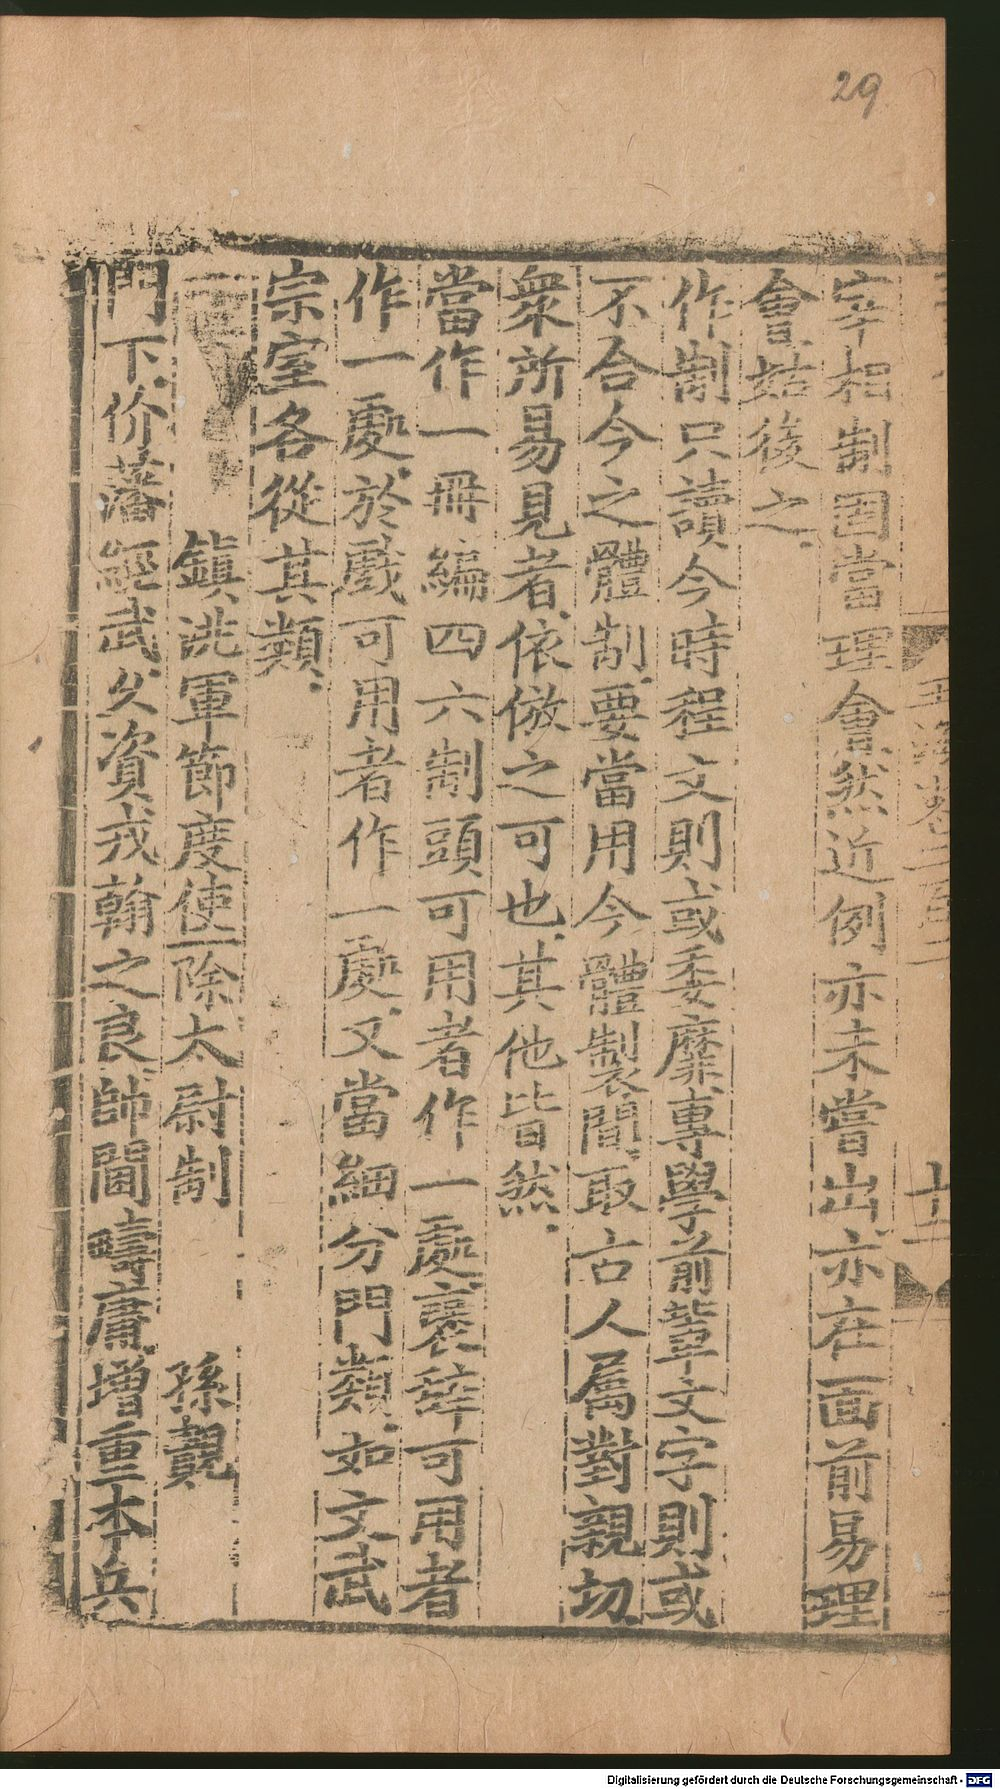 29
宰相制固當理會然近例亦未嘗出亦在一面前易理
會姑後之
作制只讀今時程文則或委靡專學前輩文字則或
不合今之體制要當用今體製間取古人屬對親切
衆所易見者依倣之可也其他皆然
當作一冊編四六制頭可用者作一處褒辭可用者
作一處於戲可用者作一處又當細分門類如文武
宗室各從其類
鎮洮軍節度使除太尉制 孫覿
門下价藩經武久資戎翰之良師閫疇庸增重本兵
玉海卷二百二
十二
Digitalisierung gefördert durch die Deutsche Forschungsgemeinschaft - DFG